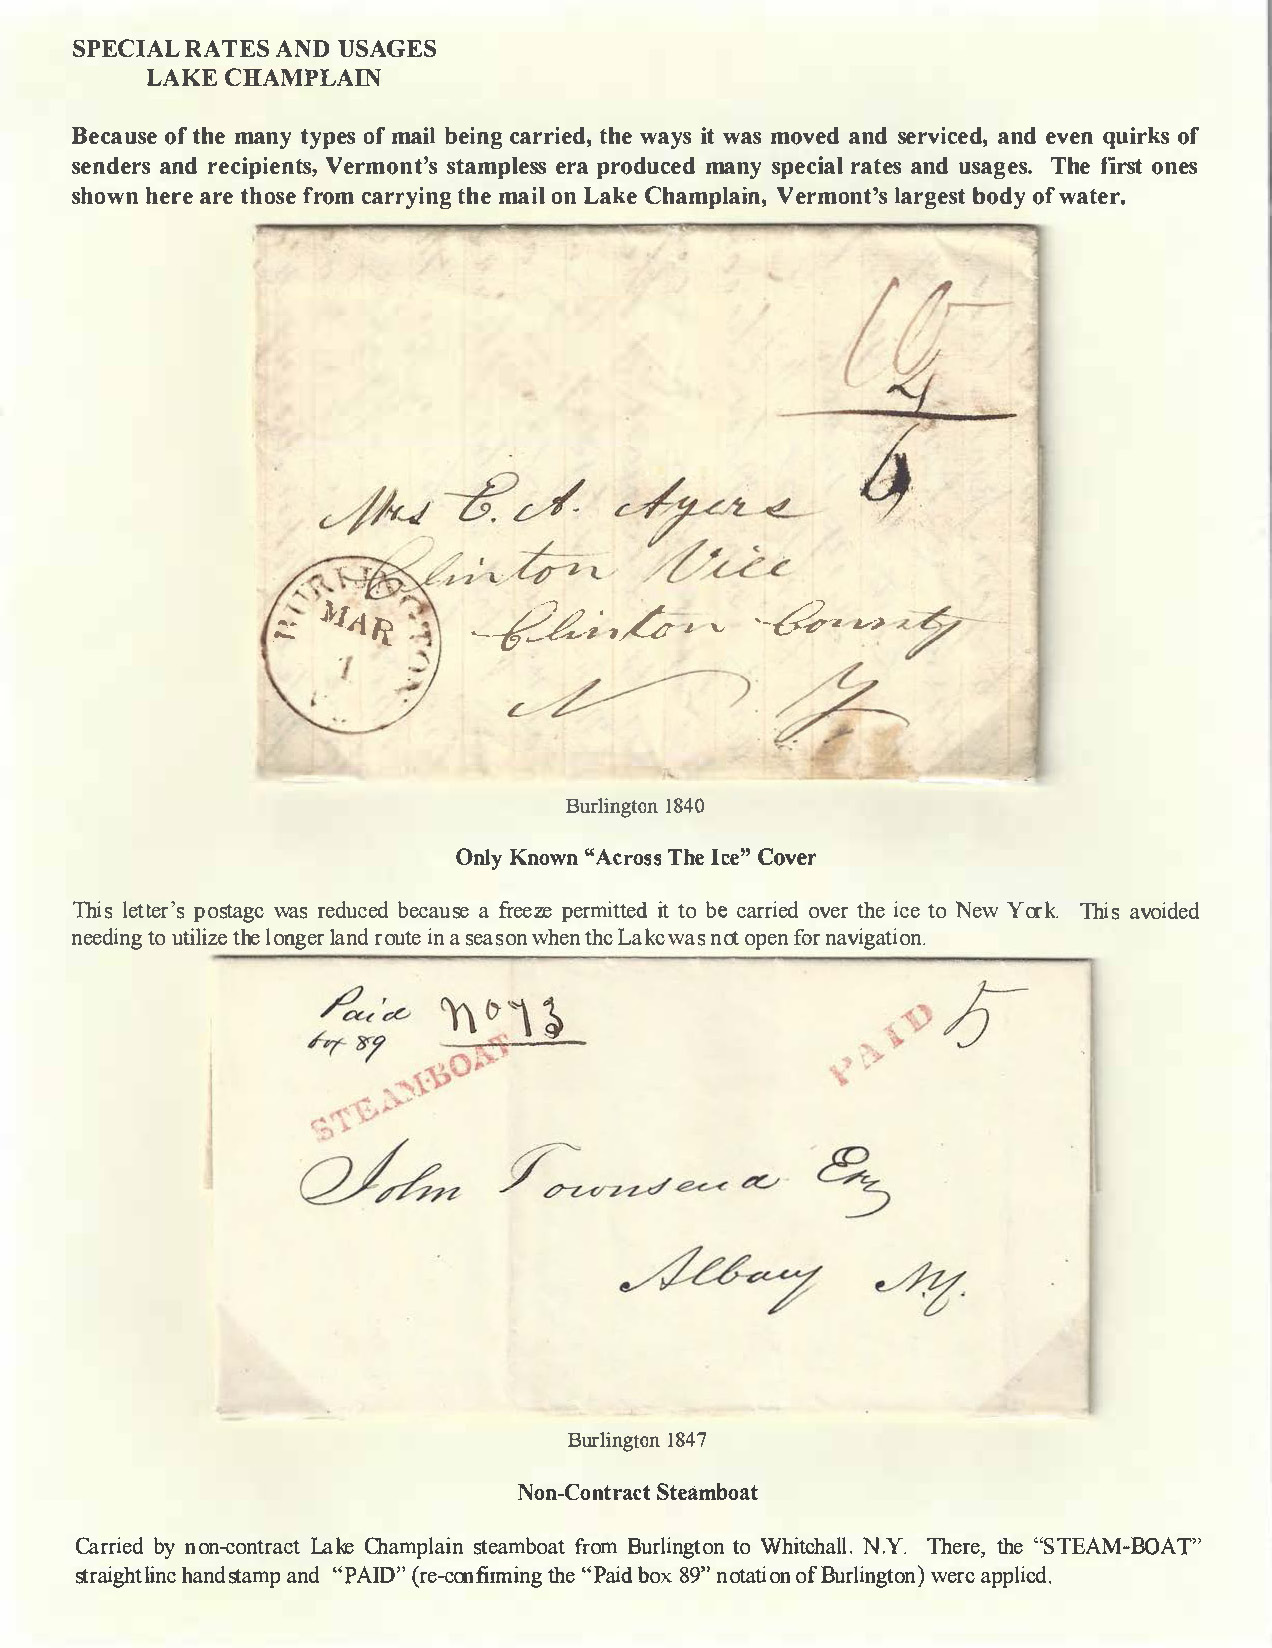 SPECIAL RATES AND USAGES
LAKE CHAMPLAIN
Because of the many types of mail being carried, the ways it was moved and serviced, and even quirks of
senders and recipients, Vermont's stampless era produced many special rates and usages. The first ones
shown here are those from carrying the mail on Lake Champlain, Vermont's largest body of water.
10
4
6
Mrs E. A. Ayers
Clinton Vill
Clinton County
N Y
BURLINGTON
MAR
1
Burlington 1840
Only Known “Across The Ice” Cover
This letter's postage was reduced because a freeze permitted it to be carried over the ice to New York. This avoided
needing to utilize the longer land route in a season when the Lake was not open for navigation.
Paid No 73
box 89
STEAM-BOAT
PAID 5
John Townsend Esq
Albany N.Y.
Burlington 1847
Non-Contract Steamboat
Carried by non-contract Lake Champlain steamboat from Burlington to Whitehall, N.Y. There, the “STEAM-BOAT”
straightline handstamp and “PAID” (re-confirming the “Paid box 89” notation of Burlington) were applied.